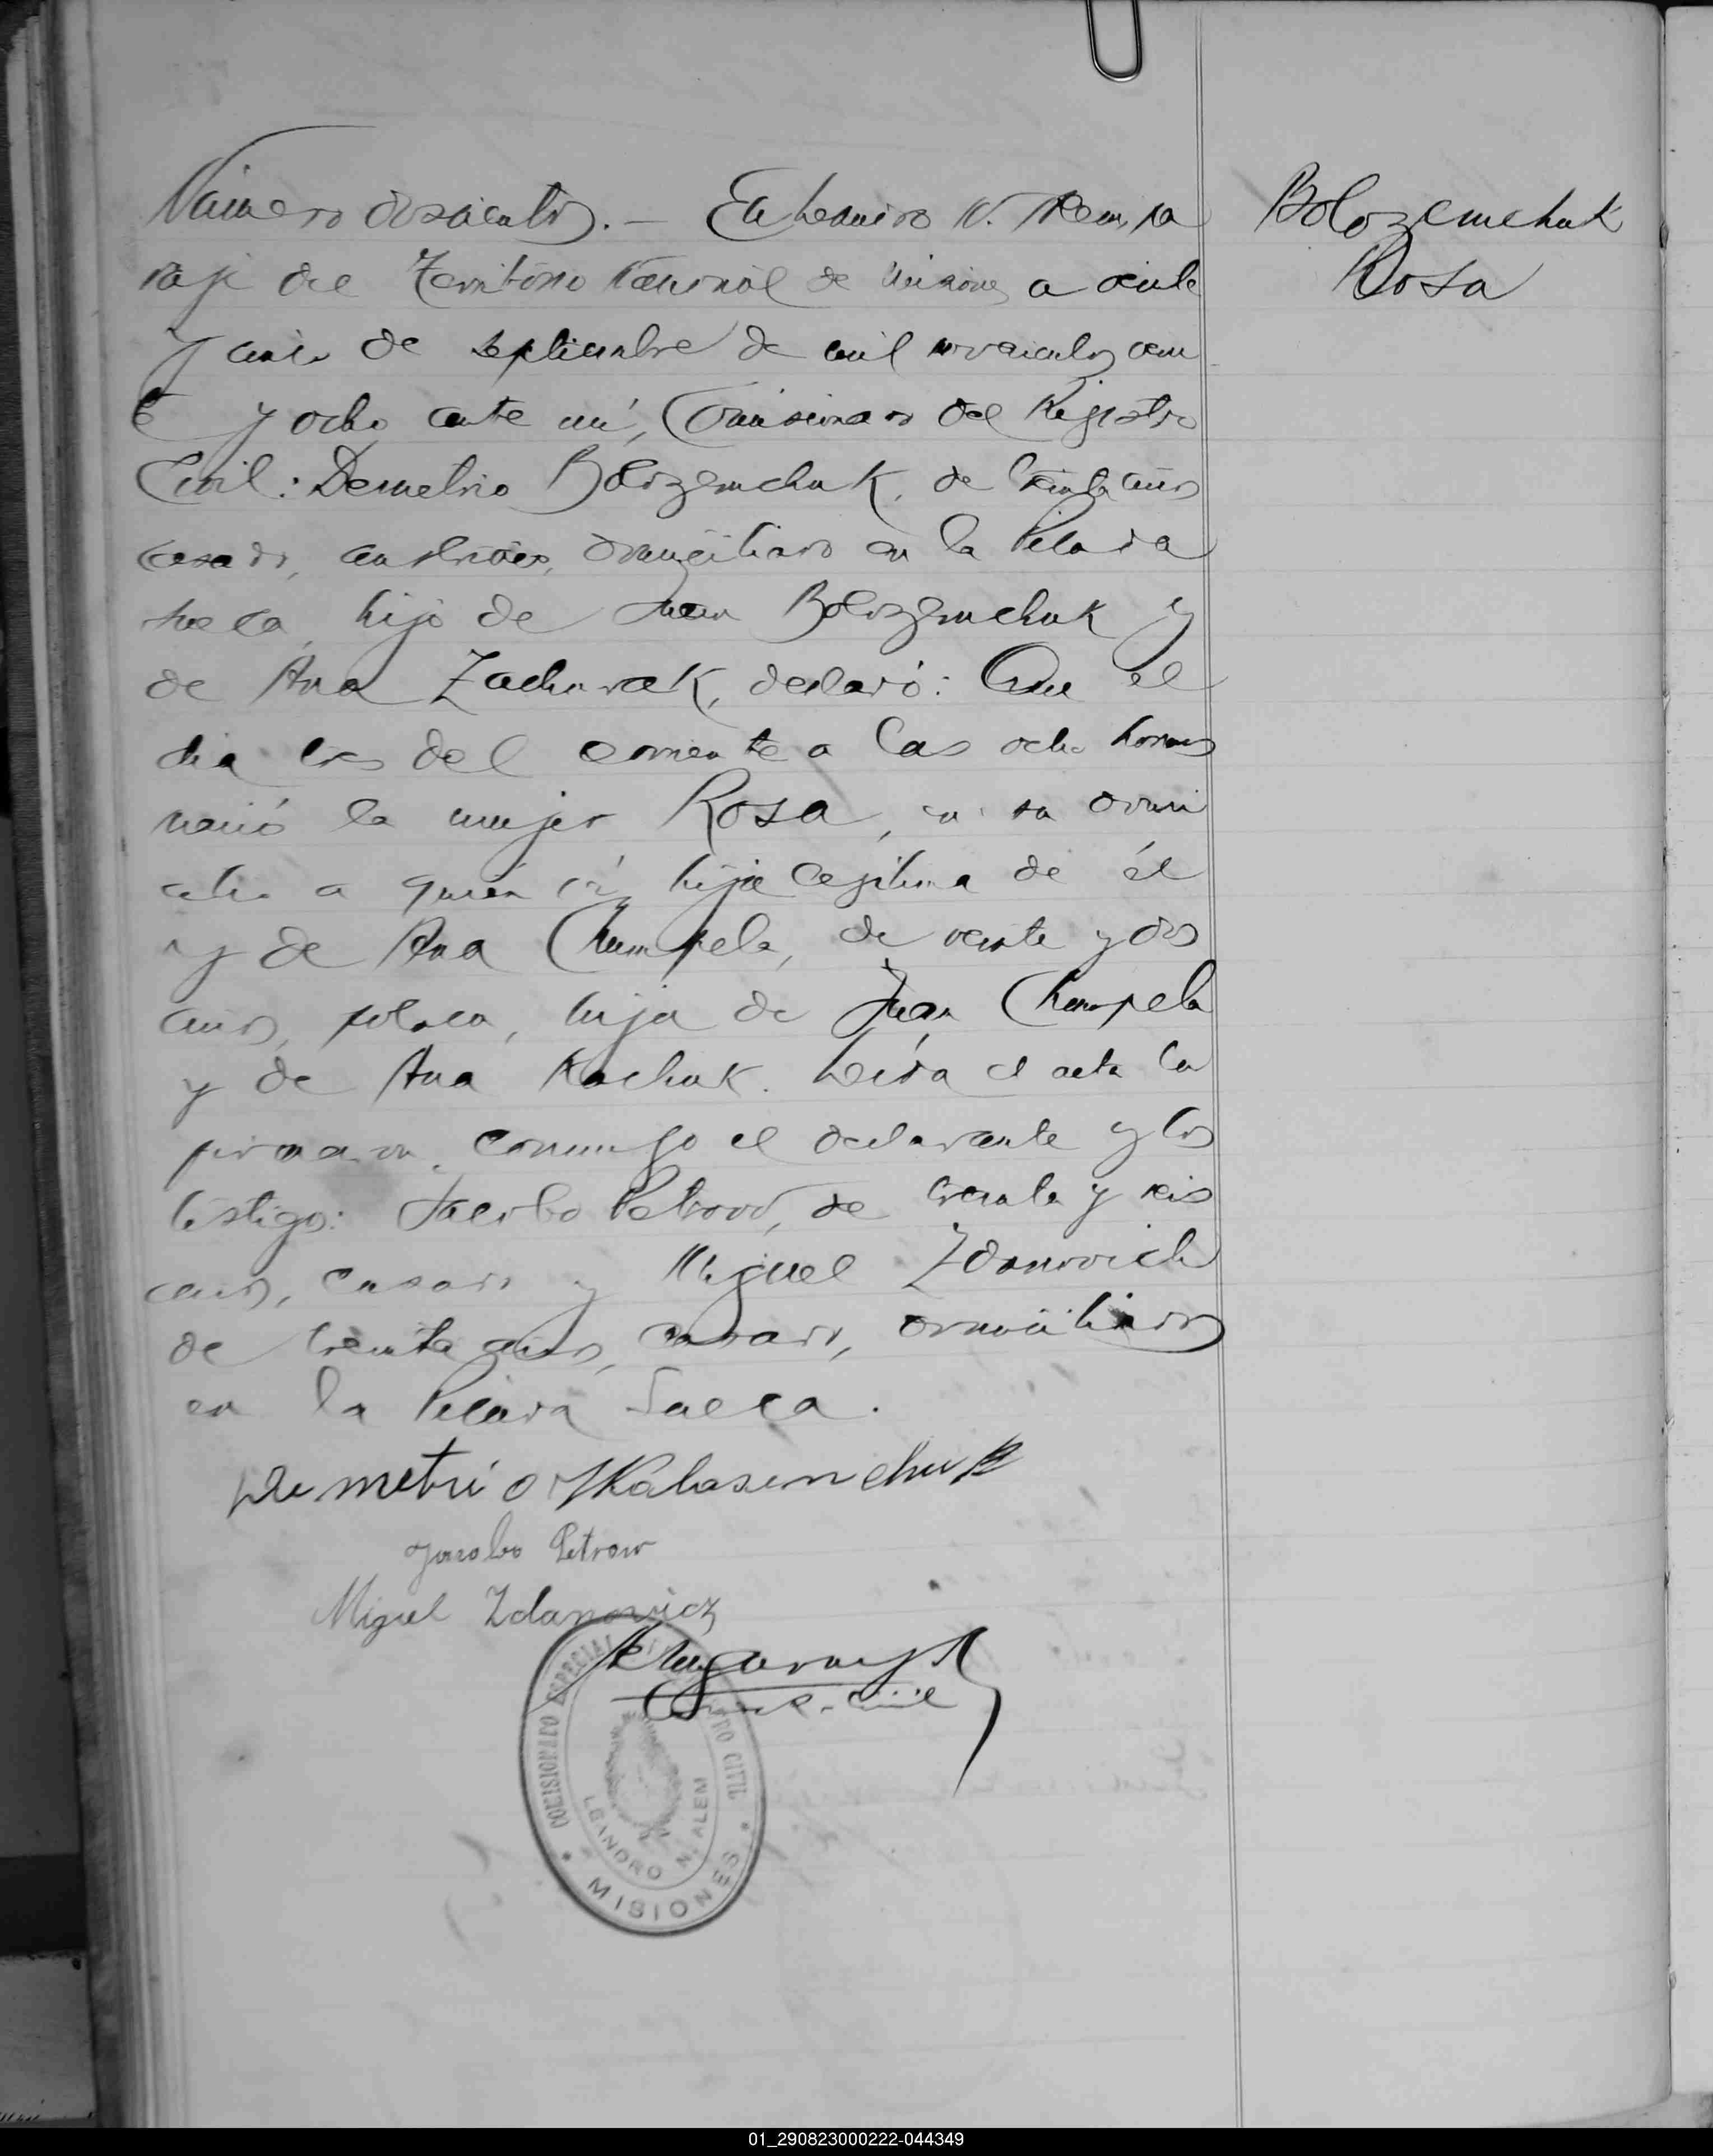 Número doscientos. — En Leandro N. Alem, pa
Bolozemchuk
Rosa
raje del Territorio Nacional de Misiones a veinte
y cinco de septiembre de mil novecientos vein
te y ocho ante mí, Comisionado del Registro
Civil: Demetrio Bolozemchuk, de treinta años
casado, austriaco, domiciliado en la Picada
sueca, hijo de Juan Bolozemchuk y
de Ana Zachurak, declaró: Que el
dia tres del corriente a las ocho horas
nació la mujer Rosa, en su domi
cilio a quien vi, hija legitima de él
y de Ana Chumpela, de veinte y dos
años, polaca, hija de Juan Chumpela
y de Ana Kachuk. Leída el acta la
firmaron conmigo el declarante y los
testigos: Jacobo Petrow, de treinta y seis
años, casado y Miguel Zdanovich
de treinta años, casado, domiciliados
en la Picada Sueca.
Demetrio Kalasemchuk
Jacobo Petrow
Miguel Zdanowicz
COMISIONADO ESPECIAL
REGISTRO CIVIL
LEANDRO N. ALEM
MISIONES
01_290823000222-044349